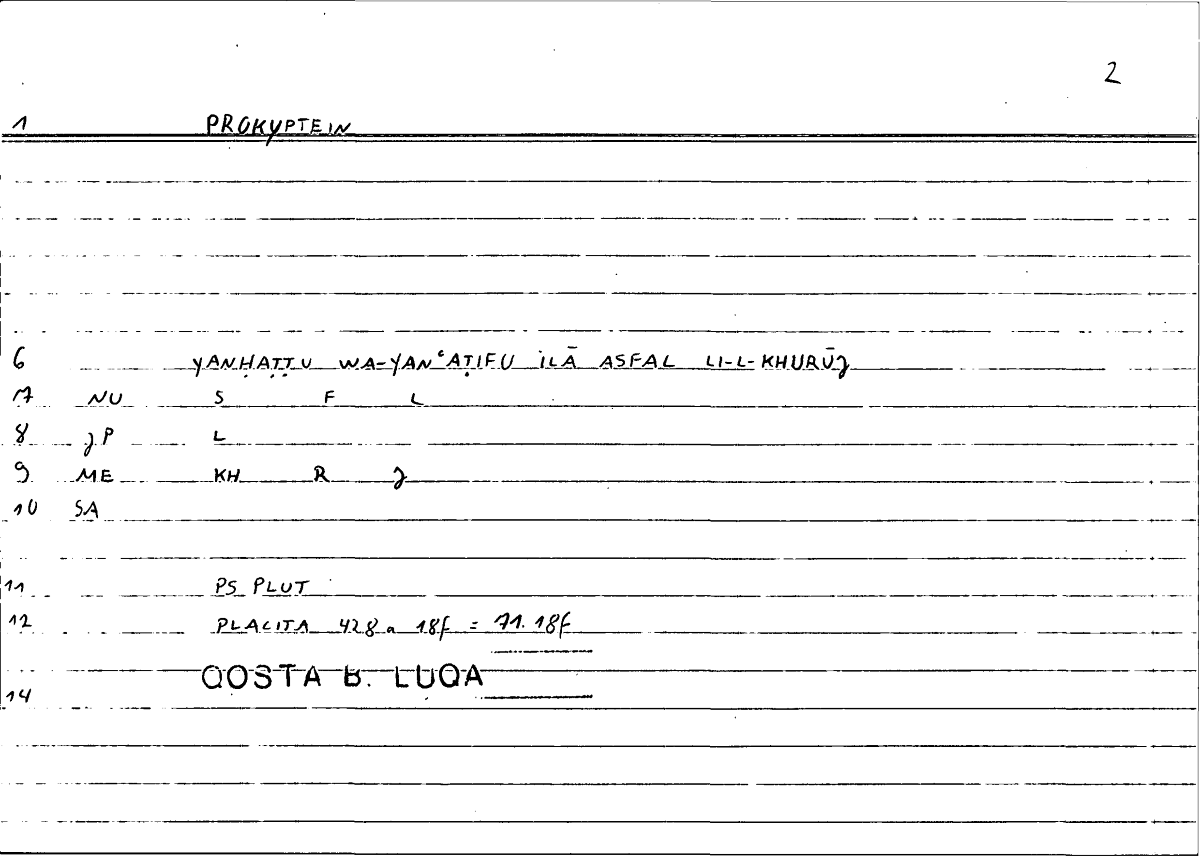 2
1 PROKYPTEIN
6 YANḤAṬṬU WA-YANʿAṬIFU ILĀ ASFAL LI-L-KHURŪJ
7 NU S F L
8 JP L
9 ME KH R J
10 SA
11 PS PLUT
12 PLACITA 428 a 18f = 71.18f
QOSTA B. LUQA
14